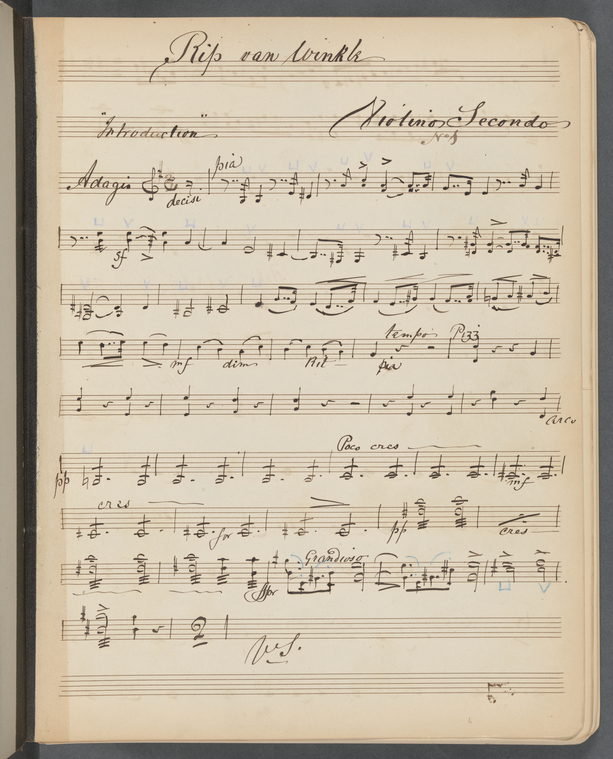 Rip van Winkle
"Introduction" Violino Secondo
No 1
Adagio decisi pia
sf
mf dim Rit tempo pia Pizz
arco
pp Poco cres mf
cres for pp cres
ffor Grandioso
2
V.S.